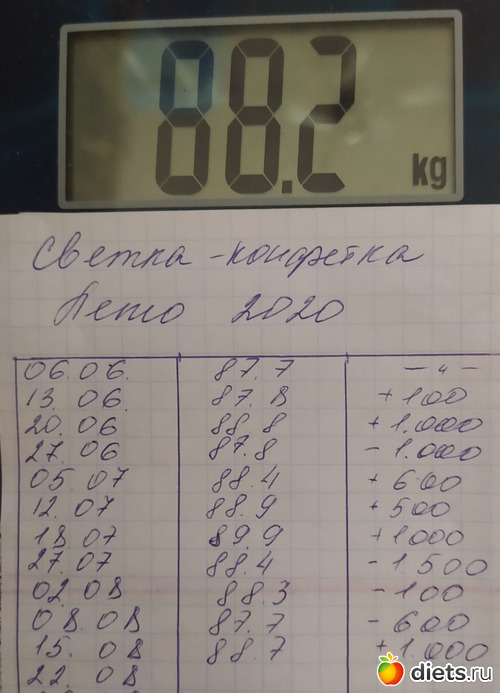 88.2 kg
Светка-конфетка
Лето 2020
06.06. 87.7 — " —
13.06 87.8 +100
20.06 88.8 +1.000
27.06 87.8 -1.000
05.07 88.4 +600
12.07 88.9 +500
18.07 89.9 +1000
27.07 88.4 -1.500
02.08 88.3 -100
08.08 87.7 -600
15.08 88.7 +1.000
22.08
diets.ru